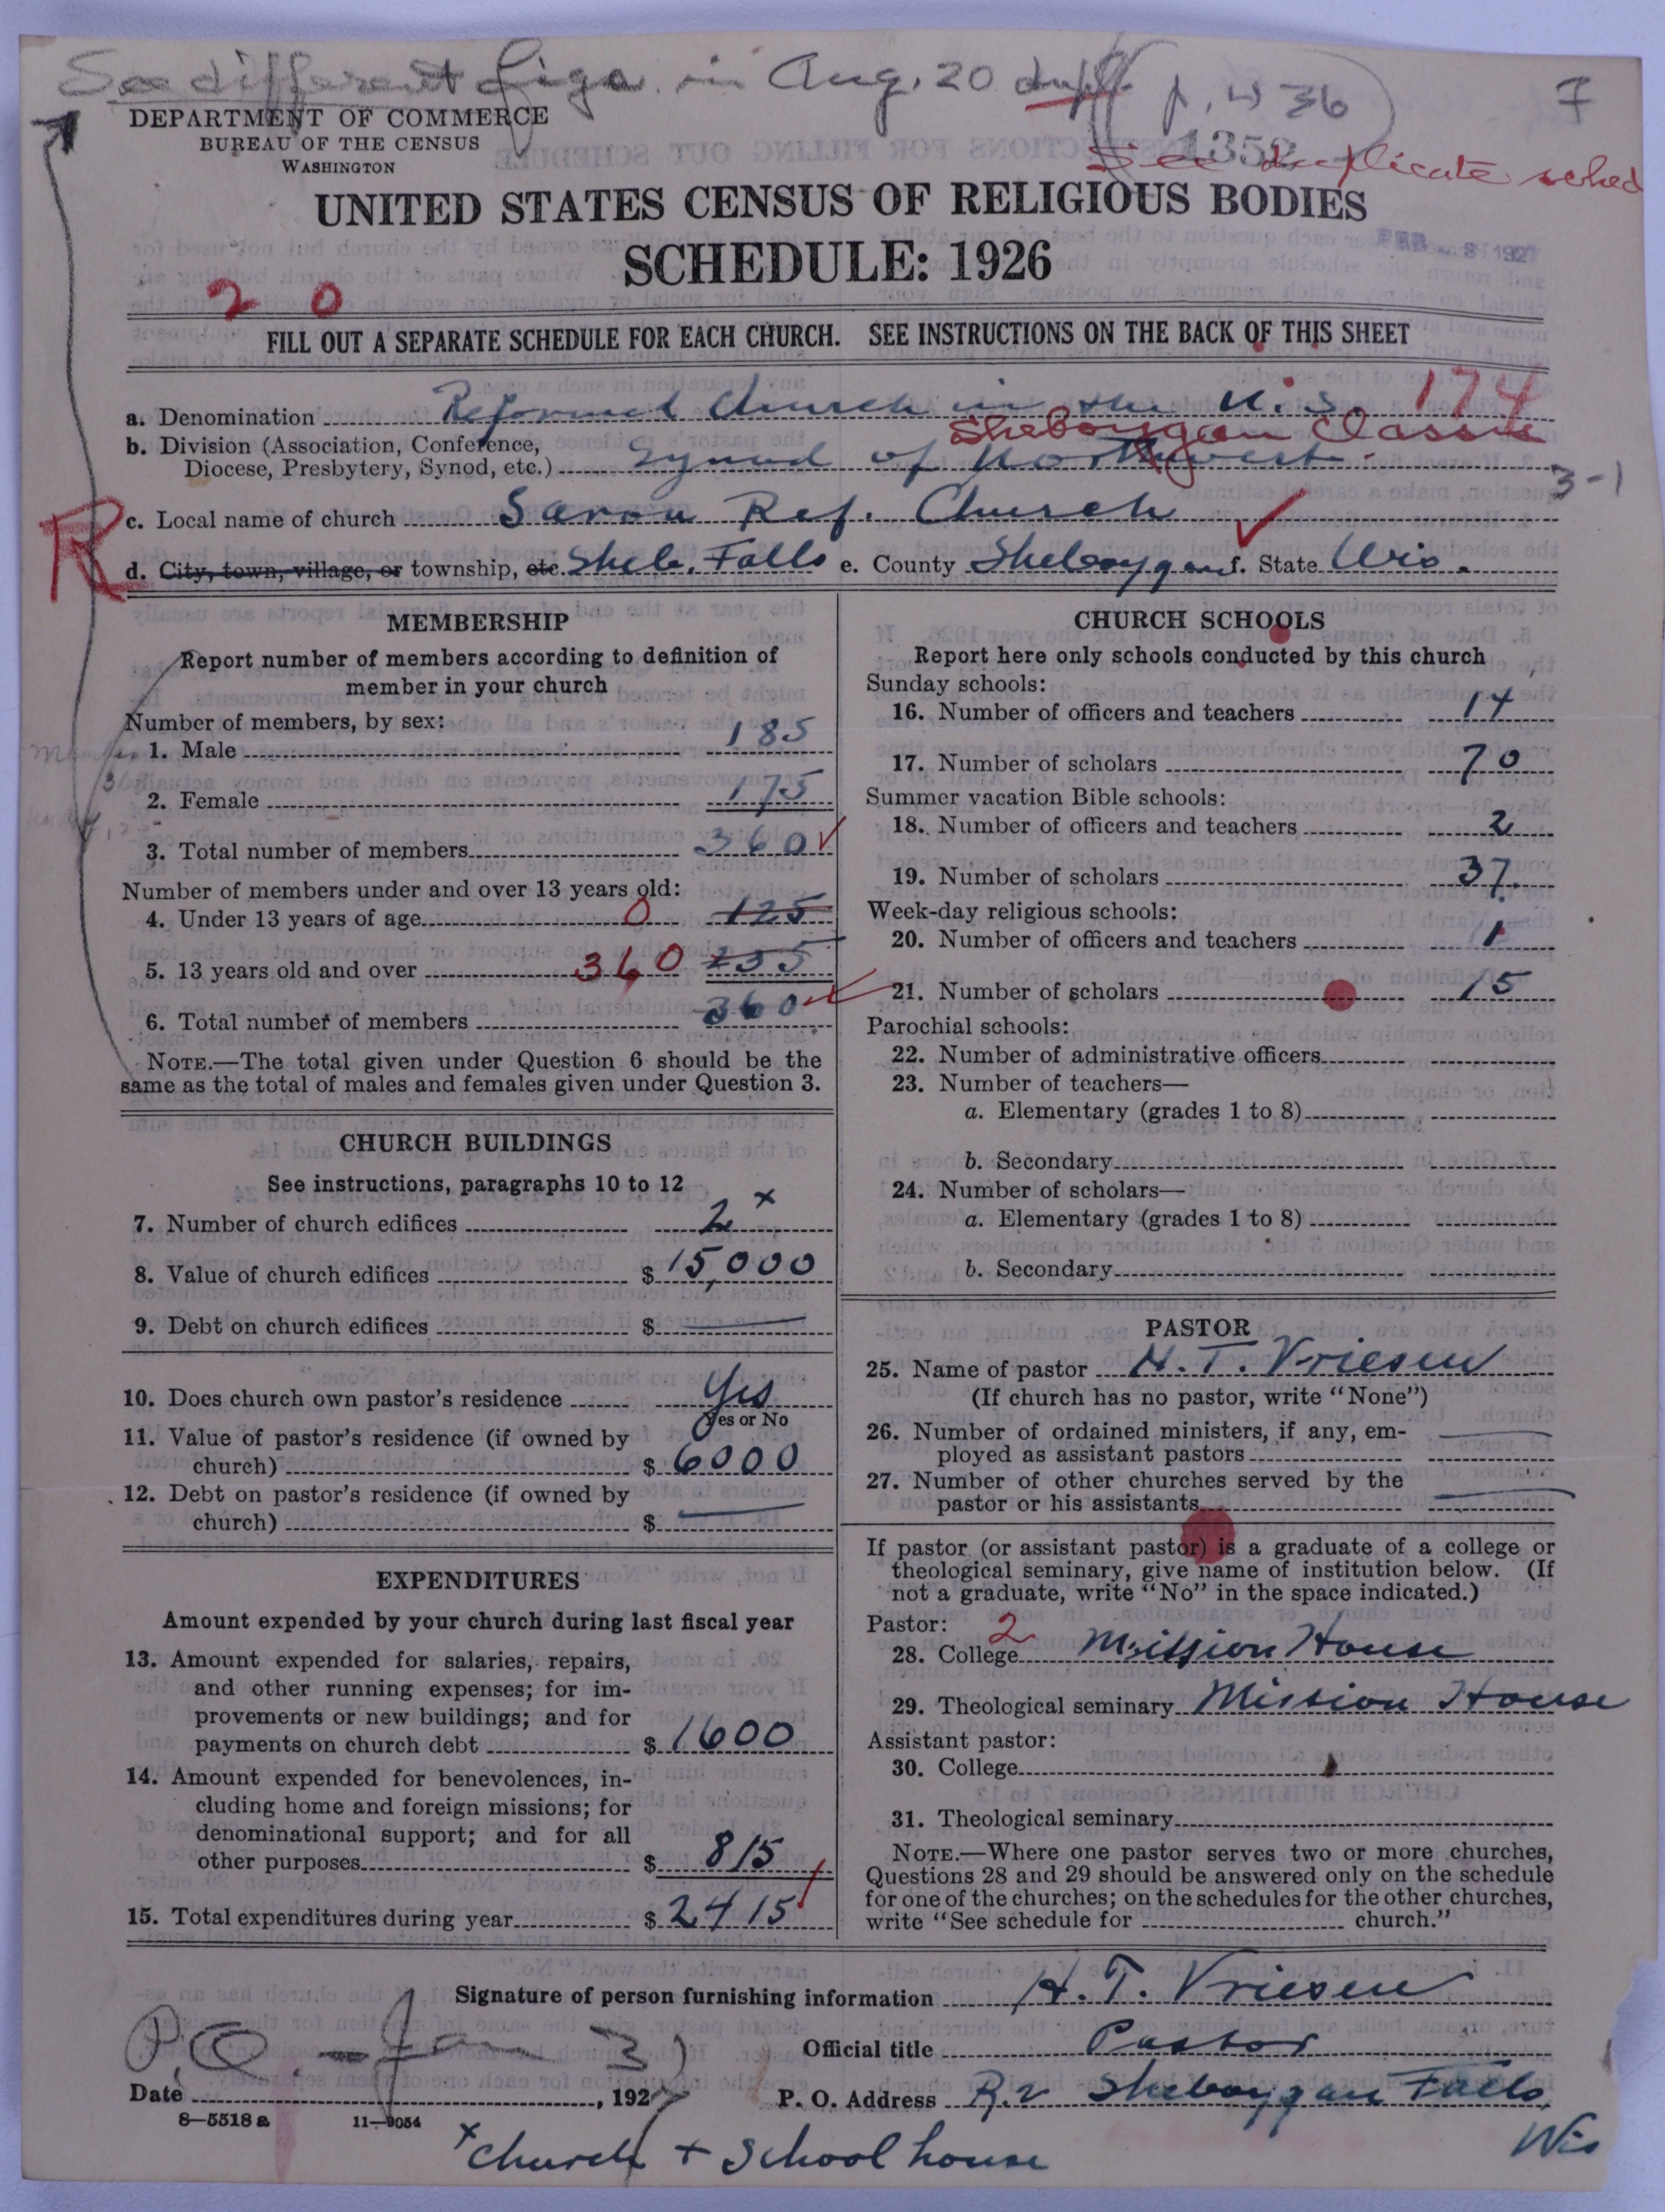 See different figs. in Aug. 20 dupl p. 436
7
DEPARTMENT OF COMMERCE
BUREAU OF THE CENSUS
WASHINGTON
1352
See duplicate sched
UNITED STATES CENSUS OF RELIGIOUS BODIES
SCHEDULE: 1926
FEB -8 1927
2 0
FILL OUT A SEPARATE SCHEDULE FOR EACH CHURCH. SEE INSTRUCTIONS ON THE BACK OF THIS SHEET
a. Denomination Reformed Church in the U.S. 174
Sheboygan Classis
b. Division (Association, Conference,
Diocese, Presbytery, Synod, etc.) Synod of Northwest.
3-1
c. Local name of church Saron Ref. Church
R
d. City, town, village, or township, etc. Sheb. Falls e. County Sheboygan f. State Wis.
MEMBERSHIP
Report number of members according to definition of
member in your church
Number of members, by sex:
1. Male 185
2. Female 175
3. Total number of members 360
Number of members under and over 13 years old:
4. Under 13 years of age 0 125
5. 13 years old and over 360 235
6. Total number of members 360
NOTE.—The total given under Question 6 should be the
same as the total of males and females given under Question 3.
CHURCH BUILDINGS
See instructions, paragraphs 10 to 12
7. Number of church edifices 2 x
8. Value of church edifices $ 15,000
9. Debt on church edifices $
10. Does church own pastor's residence Yes
Yes or No
11. Value of pastor's residence (if owned by
church) $ 6000
12. Debt on pastor's residence (if owned by
church) $
EXPENDITURES
Amount expended by your church during last fiscal year
13. Amount expended for salaries, repairs,
and other running expenses; for im-
provements or new buildings; and for
payments on church debt $ 1600
14. Amount expended for benevolences, in-
cluding home and foreign missions; for
denominational support; and for all
other purposes $ 815
15. Total expenditures during year $ 2415
CHURCH SCHOOLS
Report here only schools conducted by this church
Sunday schools:
16. Number of officers and teachers 14
17. Number of scholars 70
Summer vacation Bible schools:
18. Number of officers and teachers 2
19. Number of scholars 37.
Week-day religious schools:
20. Number of officers and teachers 1
21. Number of scholars 15
Parochial schools:
22. Number of administrative officers
23. Number of teachers—
a. Elementary (grades 1 to 8)
b. Secondary
24. Number of scholars—
a. Elementary (grades 1 to 8)
b. Secondary
PASTOR
25. Name of pastor H. T. Vriesen
(If church has no pastor, write "None")
26. Number of ordained ministers, if any, em-
ployed as assistant pastors
27. Number of other churches served by the
pastor or his assistants
If pastor (or assistant pastor) is a graduate of a college or
theological seminary, give name of institution below. (If
not a graduate, write "No" in the space indicated.)
Pastor:
28. College 2 Mission House
29. Theological seminary Mission House
Assistant pastor:
30. College
31. Theological seminary
NOTE.—Where one pastor serves two or more churches,
Questions 28 and 29 should be answered only on the schedule
for one of the churches; on the schedules for the other churches,
write "See schedule for church."
Signature of person furnishing information H. T. Vriesen
Official title Pastor
P.O. - Jan 31
Date , 1927 P. O. Address R. 2 Sheboygan Falls,
Wis
8—5518 a 11—9054
x Church + School house